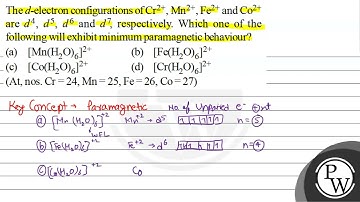 The d-electron configurations of Cr²⁺, Mn²⁺, Fe²⁺ and Co²⁺
are d⁴, d⁵, d⁶ and d⁷, respectively. Which one of the
following will exhibit minimum paramagnetic behaviour?
(a) [Mn(H₂O)₆]²⁺ (b) [Fe(H₂O)₆]²⁺
(c) [Co(H₂O)₆]²⁺ (d) [Cr(H₂O)₆]²⁺
(At, nos. Cr = 24, Mn = 25, Fe = 26, Co = 27)
Key Concept → Paramagnetic No. of Unpaired e⁻
(a) [Mn(H₂O)₆]⁺² Mn⁺² → d⁵ 1 1 1 1 1 n = 5
WFL
(b) [Fe(H₂O)₆]⁺² Fe⁺² → d⁶ 1l 1 1 1 1 n = 4
(c) [Co(H₂O)₆]⁺² Co
PW